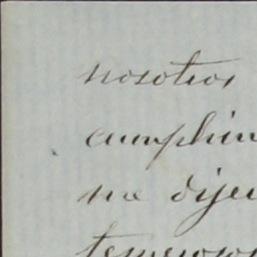 nosotros
cumplim
me dije
temeroso